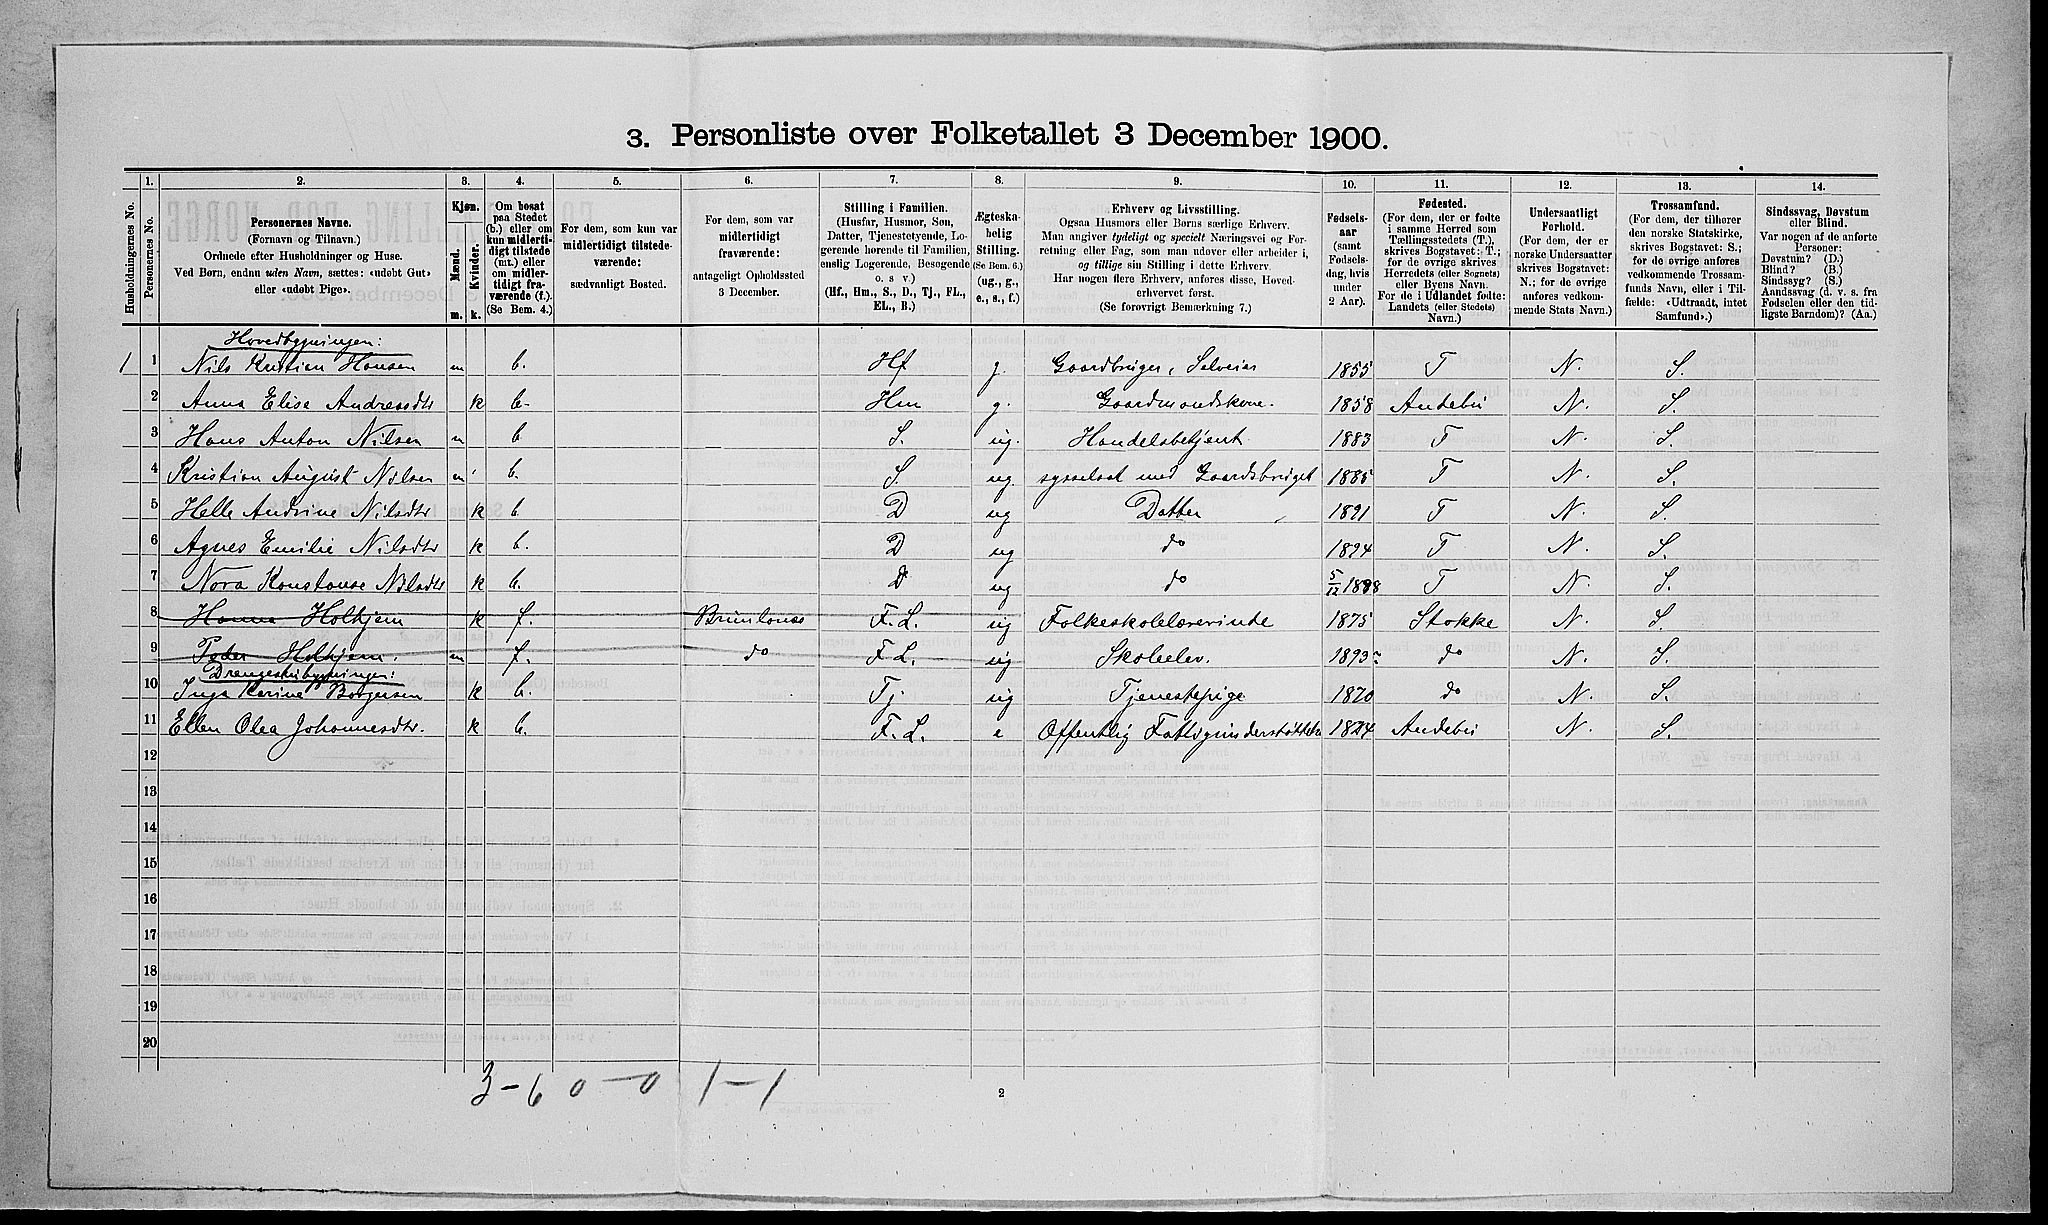 3. Personliste over Folketallet 3 December 1900.
1. 2. 3. 4. 5. 6. 7. 8. 9. 10. 11. 12. 13. 14.
Husholdningernes No.
Personernes No.
Personernes Navne.
(Fornavn og Tilnavn.)
Ordnede efter Husholdninger og Huse.
Ved Børn, endnu uden Navn, sættes: «udøbt Gut»
eller «udøbt Pige».
Kjøn.
Mænd.
Kvinder.
m. k.
Om bosat
paa Stedet
(b.) eller om
kun midlerti-
digt tilstede
(mt.) eller
om midler-
tidigt fra-
værende (f.).
(Se Bem. 4.)
For dem, som kun var
midlertidigt tilstede-
værende:
sædvanligt Bosted.
For dem, som var
midlertidigt
fraværende:
antageligt Opholdssted
3 December.
Stilling i Familien.
(Husfar, Husmor, Søn,
Datter, Tjenestetyende, Lo-
gerende hørende til Familien,
enslig Logerende, Besøgende
o. s. v.)
(Hf., Hm., S., D., Tj., FL.,
EL., B.)
Ægteska-
belig
Stilling.
(Se Bem. 6.)
(ug., g.,
e., s., f.)
Erhverv og Livsstilling.
Ogsaa Husmors eller Børns særlige Erhverv.
Man angiver tydeligt og specielt Næringsvei og For-
retning eller Fag, som man udøver eller arbeider i,
og tillige sin Stilling i dette Erhverv.
Har nogen flere Erhverv, anføres disse, Hoved-
erhvervet først.
(Se forøvrigt Bemærkning 7.)
Fødsels-
aar
(samt
Fødsels-
dag, hvis
under
2 Aar).
Fødested.
(For dem, der er fødte
i samme Herred som
Tællingsstedets (T.),
skrives Bogstavet: T.;
for de øvrige skrives
Herredets (eller Sognets)
eller Byens Navn.
For de i Udlandet fødte:
Landets (eller Stedets)
Navn.)
Undersaatligt
Forhold.
(For dem, der er
norske Undersaatter
skrives Bogstavet:
N.; for de øvrige
anføres vedkom-
mende Stats Navn.)
Trossamfund.
(For dem, der tilhører
den norske Statskirke,
skrives Bogstavet: S.;
for de øvrige anføres
vedkommende Trossam-
funds Navn, eller i Til-
fælde: «Udtraadt, intet
Samfund».)
Sindssvag, Døvstum
eller Blind.
Var nogen af de anførte
Personer:
Døvstum? (D.)
Blind? (B.)
Sindssyg? (S.)
Aandssvag (d. v. s. fra
Fødselen eller den tid-
ligste Barndom)? (Aa.)
Hovedbygningen:
1 1 Nils Kristian Hansen m b. Hf g. Gaardbruger, Selveier 1855 T N. S.
2 Anna Elise Andreasdtr k b. Hm g. Gaardmandskone. 1858 Andebu N. S.
3 Hans Anton Nilsen m b S. ug. Handelsbetjent 1883 T N. S.
4 Kristian August Nilsen m b. S. ug. sysselsat med Gaardsbruget 1885 T N. S.
5 Helle Andrine Nilsdtr k b D ug Datter 1891 T N. S.
6 Agnes Emilie Nilsdtr k b. D ug do 1894 T N. S.
7 Nora Konstanse Nilsdtr k b. D ug do 5/12 1898 T N. S.
8 Hanna Holhjem k f. Brunlanes F. L. ug Folkeskolelærerinde 1875 Stokke N. S.
9 Peder Holhjem. m f. do F L. ug Skoleelev. 1893 do N. S.
Drengestubygningen:
10 Inga Karine Borgersen k b. Tj ug Tjenestepige 1870 do N. S.
11 Ellen Olea Johannesdtr. k b. F. L. e Offentlig Fattigunderstøttelse 1824 Andebu N. S.
12
13
14
15
16
17
18
19
20
3 - 6 0 - 0 1 - 1
2